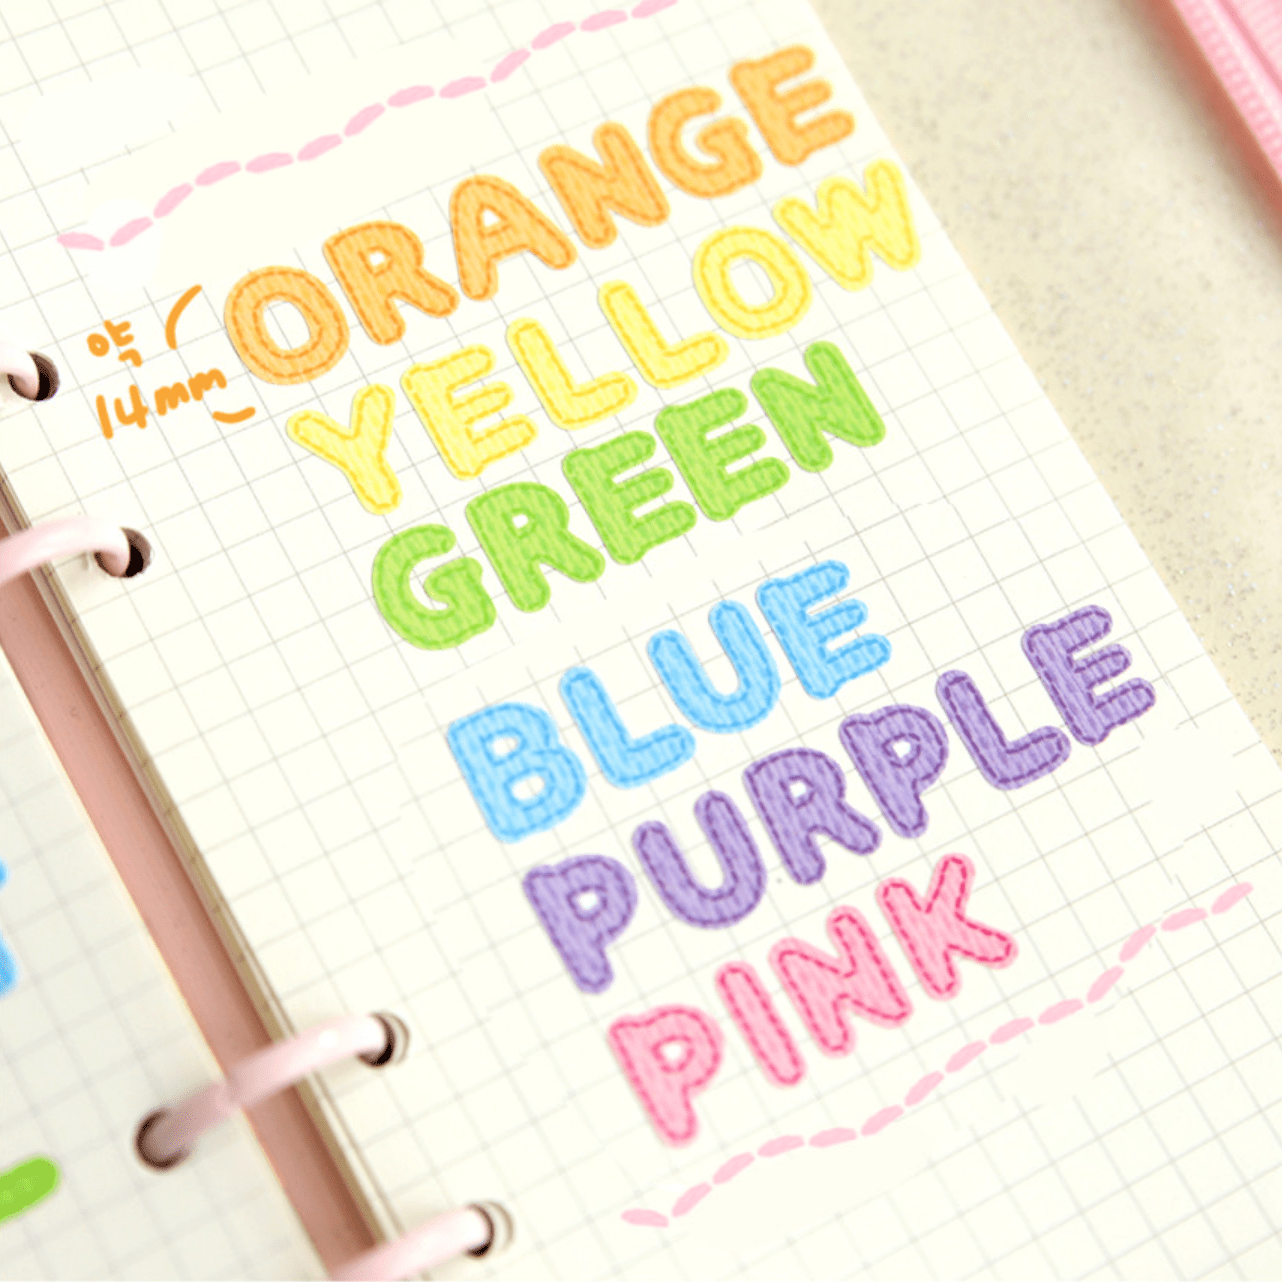 ORANGE
약
14mm
YELLOW
GREEN
BLUE
PURPLE
PINK